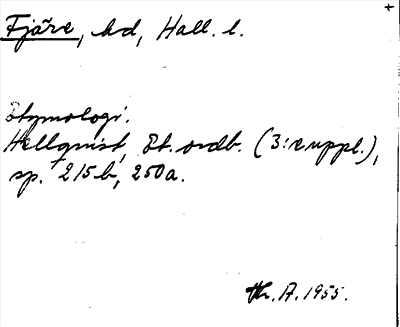 +
Fjäre, hd, Hall. l.
Etymologi.
Hellquist, Et. ordb. (3:e uppl.),
sp. 215b, 250a.
Hr. A. 1955.